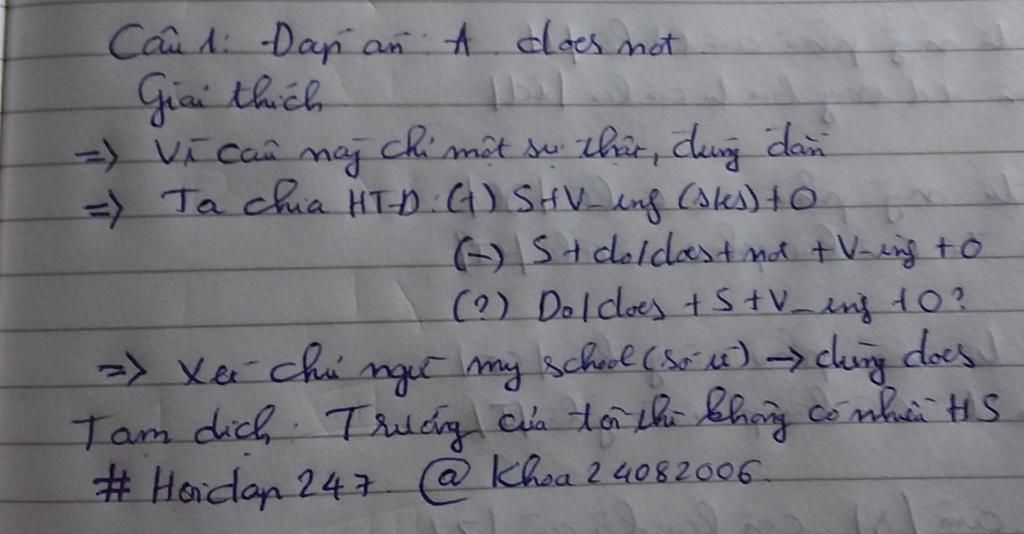 Câu 1: Đáp án: A does not
Giải thích
=> Vì câu này chỉ một sự thật, đúng đắn
=> Ta chia HTĐ: (+) S+V_ing (s/es) + O
(-) S + do/does + not + V-ing + O
(?) Do/does + S + V_ing + O?
=> Xét chủ ngữ my school (số ít) → dùng does
Tạm dịch. Trường của tôi thì không có nhiều HS
# Hoidap247. @ Khoa24082006.